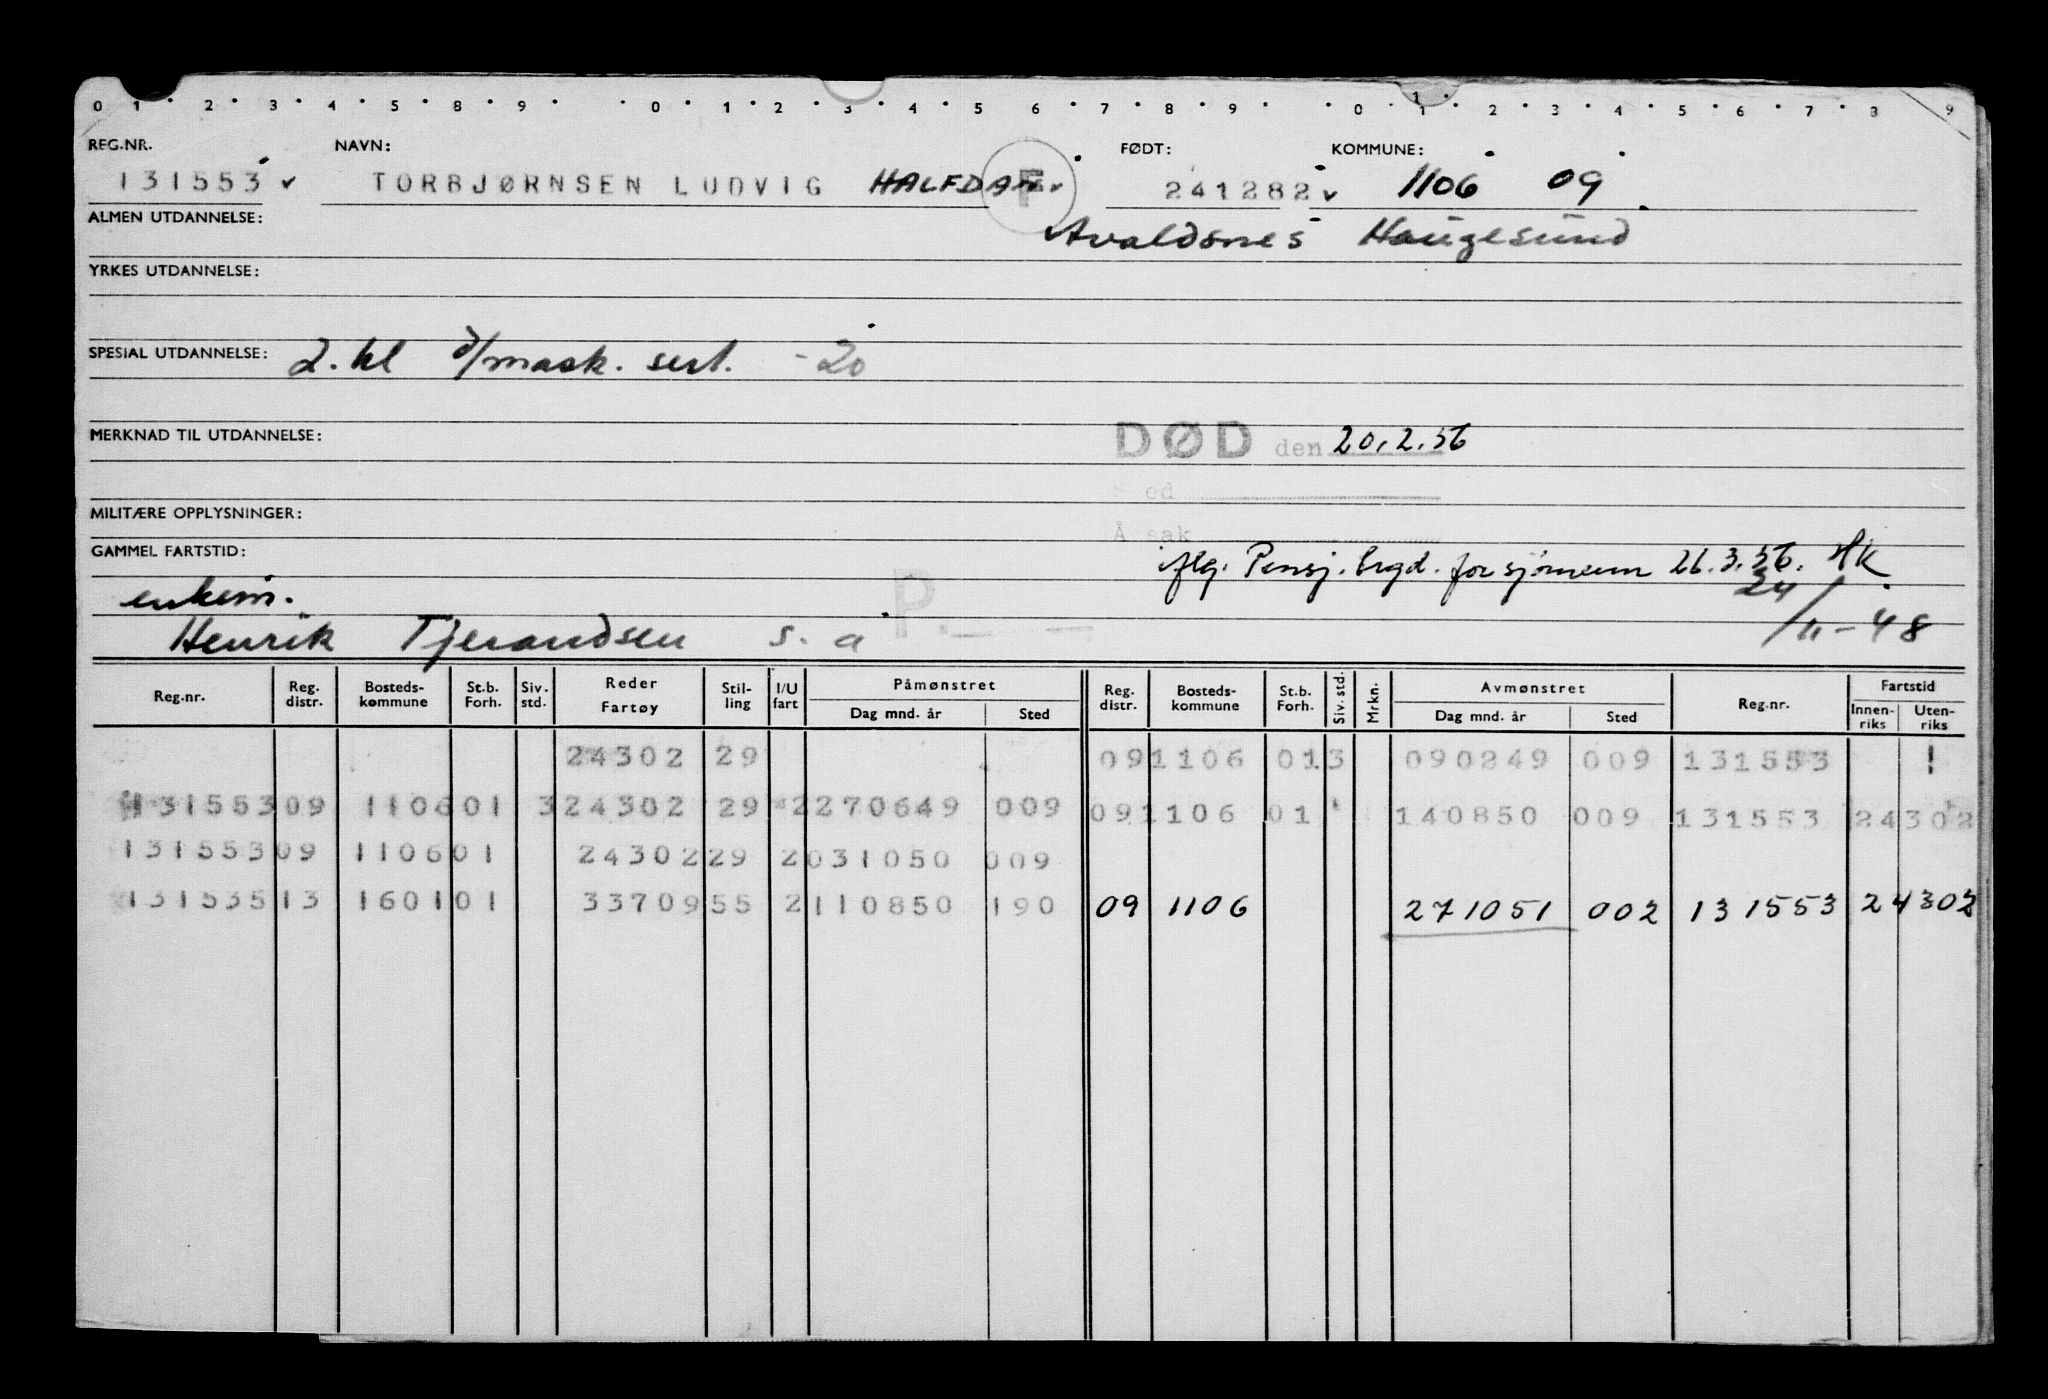 0 1 2 3 4 5 8 9 0 1 2 3 4 5 6 7 8 9 0 1 2 3 4 5 6 7 8 9
REG.NR. NAVN: FØDT: KOMMUNE:
131553 TORBJØRNSEN LUDVIG HALFDAN F 241282 1106 09
ALMEN UTDANNELSE: Avaldsnes Haugesund
YRKES UTDANNELSE:
SPESIAL UTDANNELSE: 2. kl d/mask. sert. - 20
MERKNAD TIL UTDANNELSE: DØD den 20.2.56
ed
MILITÆRE OPPLYSNINGER: Å sak
GAMMEL FARTSTID: iflg. Pensj. trygd. for sjømenn 26.3.56. HK
enkem. P. 24/11-48
Henrik Tjerandsen s. a
Reg.nr. Reg. distr. Bosteds-kommune St.b. Forh. Siv. std. Reder Fartøy Stil-ling I/U fart Påmønstret Dag mnd. år Sted Reg. distr. Bosteds-kommune St.b. Forh. Siv. std. Mrkn. Avmønstret Dag mnd. år Sted Reg.nr. Fartstid Innen-riks Uten-riks
24302 29 09 1106 01 3 090249 009 131553 !
131553 09 1106 01 3 24302 29 2 270649 009 09 1106 01 140850 009 131553 24302
131553 09 1106 01 24302 29 2 031050 009
131535 13 1601 01 33709 55 2 110850 190 09 1106 271051 002 131553 24302